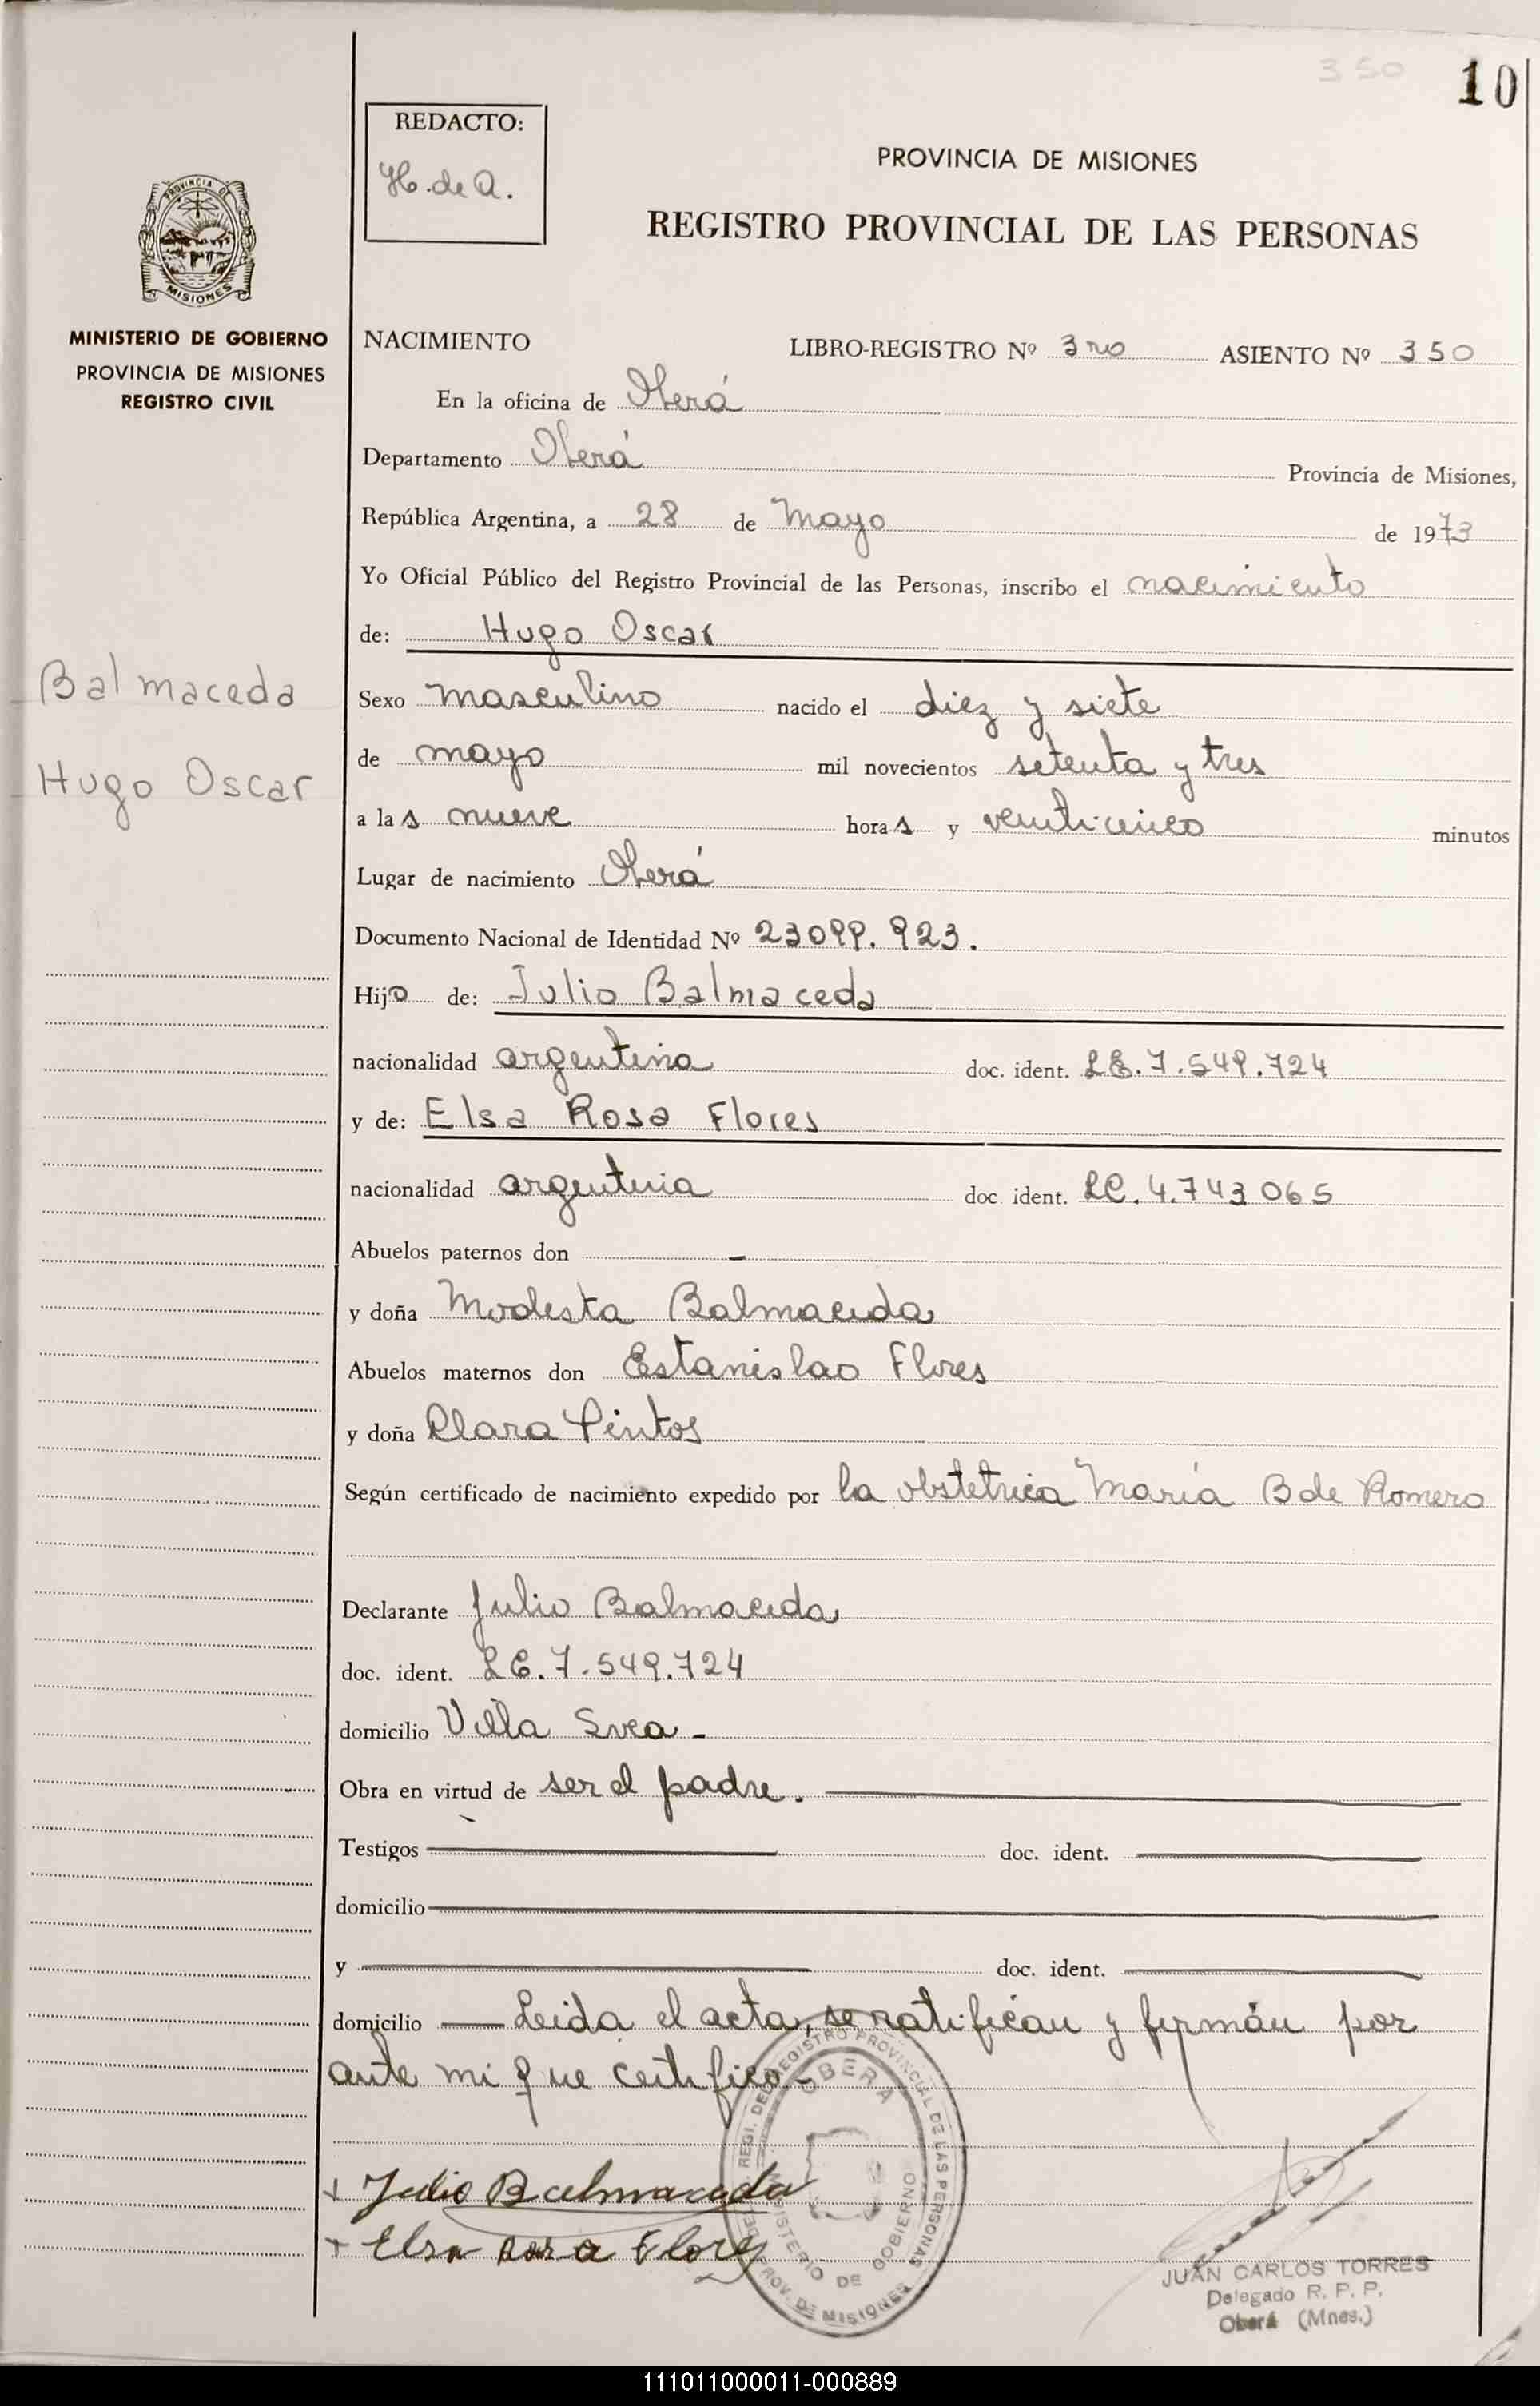 350
10
REDACTO:
H. de A.
PROVINCIA DE MISIONES
REGISTRO PROVINCIAL DE LAS PERSONAS
PROVINCIA DE
MISIONES
MINISTERIO DE GOBIERNO
PROVINCIA DE MISIONES
REGISTRO CIVIL
Balmaceda
Hugo Oscar
NACIMIENTO LIBRO-REGISTRO Nº 3ro ASIENTO Nº 350
En la oficina de Oberá
Departamento Oberá Provincia de Misiones,
República Argentina, a 28 de Mayo de 1973
Yo Oficial Público del Registro Provincial de las Personas, inscribo el nacimiento
de: Hugo Oscar
Sexo masculino nacido el diez y siete
de mayo mil novecientos setenta y tres
a las nueve horas y veinticinco minutos
Lugar de nacimiento Oberá
Documento Nacional de Identidad Nº 23099.923.
Hijo de: Julio Balmaceda
nacionalidad argentina doc. ident. LE.7.549.724
y de: Elsa Rosa Flores
nacionalidad argentina doc. ident. LC.4.743065
Abuelos paternos don -
y doña Modesta Balmaceda
Abuelos maternos don Estanislao Flores
y doña Clara Pintos
Según certificado de nacimiento expedido por la obstetrica María B de Romero
Declarante Julio Balmaceda
doc. ident. LE.7.549.724
domicilio Villa Svea -
Obra en virtud de ser el padre.
Testigos doc. ident.
domicilio
y doc. ident.
domicilio — Leida el acta, se ratifican y firmán por
ante mi que certifico -
+ Julio Balmaceda
+ Elsa Rosa Flores
REGI. DEL REGISTRO PROVINCIAL DE LAS PERSONAS
OBERA
MINISTERIO DE GOBIERNO
PROV. DE MISIONES
JUAN CARLOS TORRES
Delegado R. P. P.
Oberá (Mnes.)
111011000011-000889